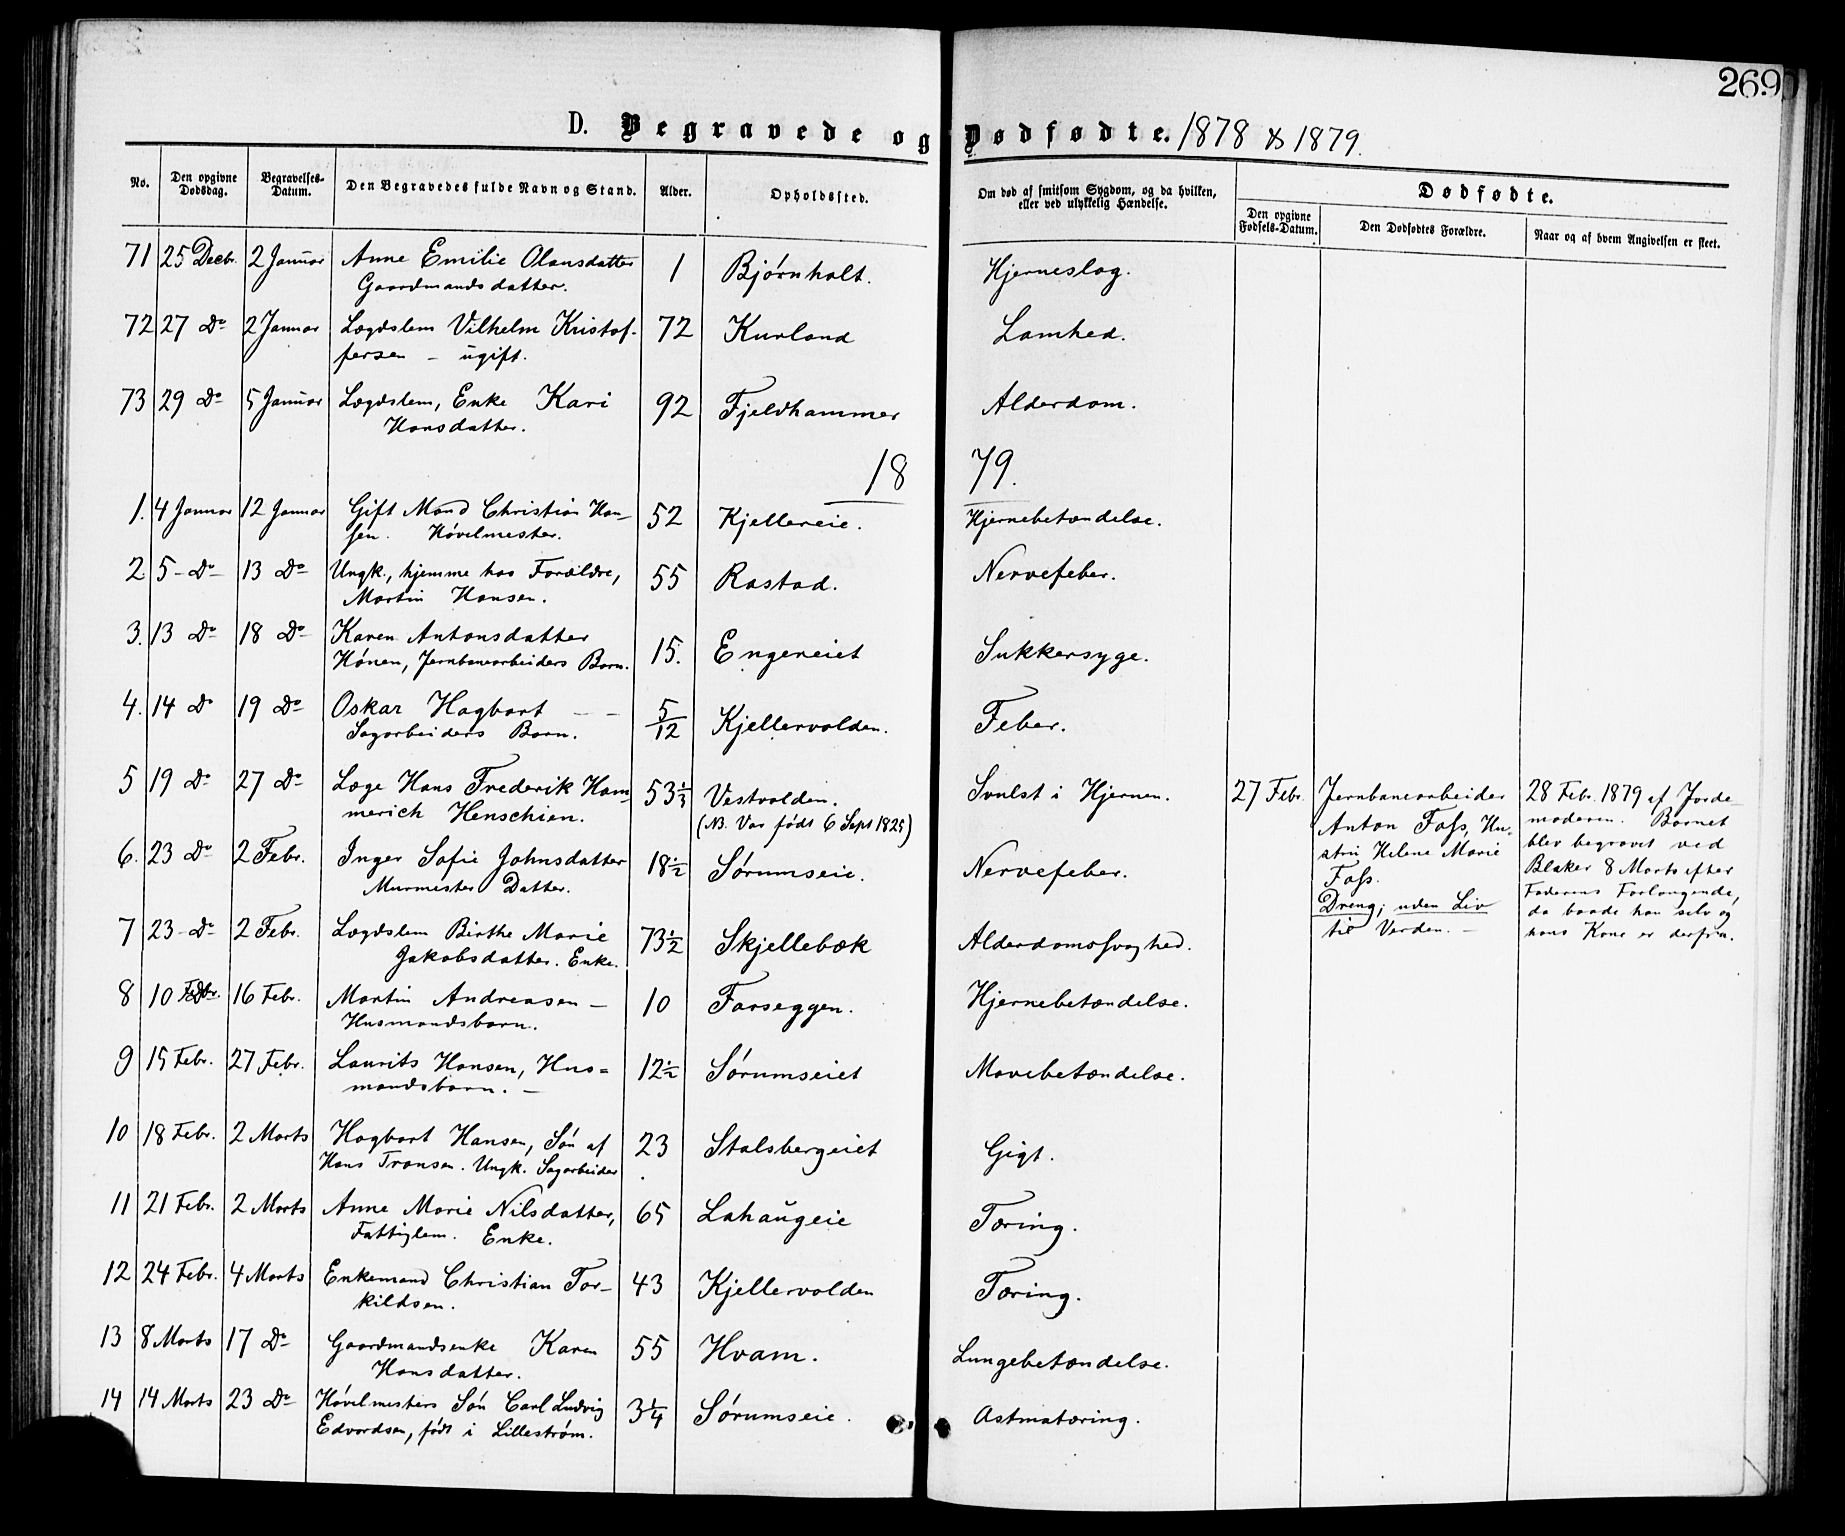 269
D. Begravede og Dødfødte. 1878 & 1879.
No. Den opgivne Dødsdag. Begravelses-Datum. Den Begravedes fulde Navn og Stand. Alder. Opholdssted. Om død af smitsom Sygdom, og da hvilken, eller ved ulykkelig Hændelse. Dødfødte.
Den opgivne Fødsels-Datum. Den Dødfødtes Forældre. Naar og af hvem Angivelsen er skeet.
71 25 Decbr. 2 Januar Anne Emilie Olausdatter 1 Bjørnholt. Hjerneslag.
Gaardmandsdatter.
72 27 Do 2 Januar Lægdslem Vilhelm Kristof- 72 Kurland Lamhed.
fersen – ugift.
73 29 Do 5 Januar Lægdslem, Enke Kari 92 Fjeldhammer Alderdom.
Hansdatter.
1879.
1. 4 Januar 12 Januar Gift Mand Christian Han- 52 Kjellereie. Hjernebetændelse.
sen. Høvelmester.
2 5 – Do – 13 Do Ungk., hjemme hos Forældre, 55 Rastad. Nervefeber.
Martin Hansen.
3. 13 Do 18 Do Karen Antonsdatter 15. Engereiet Sukkersyge.
Hønen, Jernbanearbeiders Barn.
4. 14 Do 19 Do Oskar Hagbart – – 5/12 Kjellervolden. Feber.
Sagarbeiders Barn.
5 19 Do 27 Do Læge Hans Frederik Ham- 53 1/3 Vestvolden. Svulst i Hjernen.
merich Henschien. (NB. Var født 6 Sept 1825)
27 Febr. Jernbanearbeider
Anton Foss, Hu-
stru Helene Marie
Foss.
Dreng; uden Liv
til Verden. –
28 Febr. 1879 af Jorde-
moderen. Barnet
blev begravet ved
Blaker 8 Marts efter
Faderens Forlangende,
da baade han selv og
hans Kone er derfra.
6. 23 Do 2 Febr. Inger Sofie Johnsdatter 18 1/2 Sørumseie. Nervefeber.
Murmester Datter.
7 23 – Do 2 Febr. Lægdslem Birthe Marie 73 1/2 Skjellebæk Alderdomssvaghed.
Jakobsdatter. Enke.
8 10 Febr. 16 Febr. Martin Andreasen – 10 Farseggen. Hjernebetændelse.
Husmandsbarn.
9 15 Febr. 27 Febr. Laurits Hansen, Hus= 12 1/2 Sørumseiet Mavebetændelse.
mandsbarn. –
10 18 Febr. 2 Marts Hagbart Hansen, Søn af 23 Stalsbergeiet Gigt.
Hans Transen. Ungk. Sagarbeider
11 21 Febr. 2 Marts Anne Marie Nilsdatter, 65 Lahaugeie Tæring.
Fattiglem. Enke.
12 24 Febr. 4 Marts Enkemand Christian Tor- 43 Kjellervolden Tæring.
kildsen.
13 8 Marts 17 Do Gaardmandsenke Karen 55 Hvam. Lungebetændelse.
Hansdatter.
14 14 Marts 23 Do Høvelmesters Søn Carl Ludvig 3 1/4 Sørumseie. Astmatæring.
Edvardsen, født i Lillestrøm.